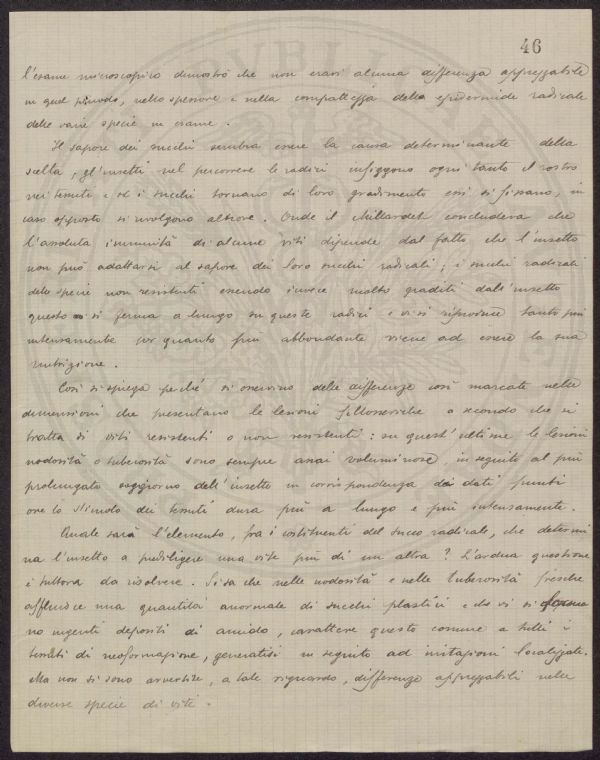 46
l'esame microscopico dimostrò che non eravi alcuna differenza apprezzabile
in quel periodo, nello spessore e nella compattezza della epidermide radicale
delle varie specie in esame.
Il sapore dei succhi sembra essere la causa determinante della
scelta, gl'insetti nel percorrere le radici infiggono ogni tanto il rostro
nei tessuti e se i succhi tornano di loro gradimento essi si fissano, in
caso opposto si rivolgono altrove. Onde il Millardet concludeva che
l'assoluta immunità di alcune viti dipende dal fatto che l'insetto
non può adattarsi al sapore dei loro succhi radicali; i succhi radicali
delle specie non resistenti essendo invece molto graditi dall'insetto
questo si ferma a lungo su queste radici e vi si riproduce tanto più
intensamente per quanto più abbondante viene ad essere la sua
nutrizione.
Così si spiega perché si osservino delle differenze così marcate nelle
dimensioni che presentano le lesioni fillosseriche a secondo che si
tratta di viti resistenti o non resistenti: su quest'ultime le lesioni
nodosità o tuberosità sono sempre assai voluminose, in seguito al più
prolungato soggiorno dell'insetto in corrispondenza dei dati punti
ove lo stimolo dei tessuti dura più a lungo e più intensamente.
Quale sarà l'elemento, fra i costituenti del succo radicale, che determi
na l'insetto a prediligere una vite più di un altra? L'ardua questione
è tuttora da risolvere. Si sa che nelle nodosità e nelle tuberosità fresche
affluisce una quantità anormale di succhi plastici e che vi si
no ingenti depositi di amido, carattere questo comune a tutti i
tessuti di neoformazione, generatisi in seguito ad irritazioni localizzate.
Ma non si sono avvertite, a tale riguardo, differenze apprezzabili nelle
diverse specie di viti.